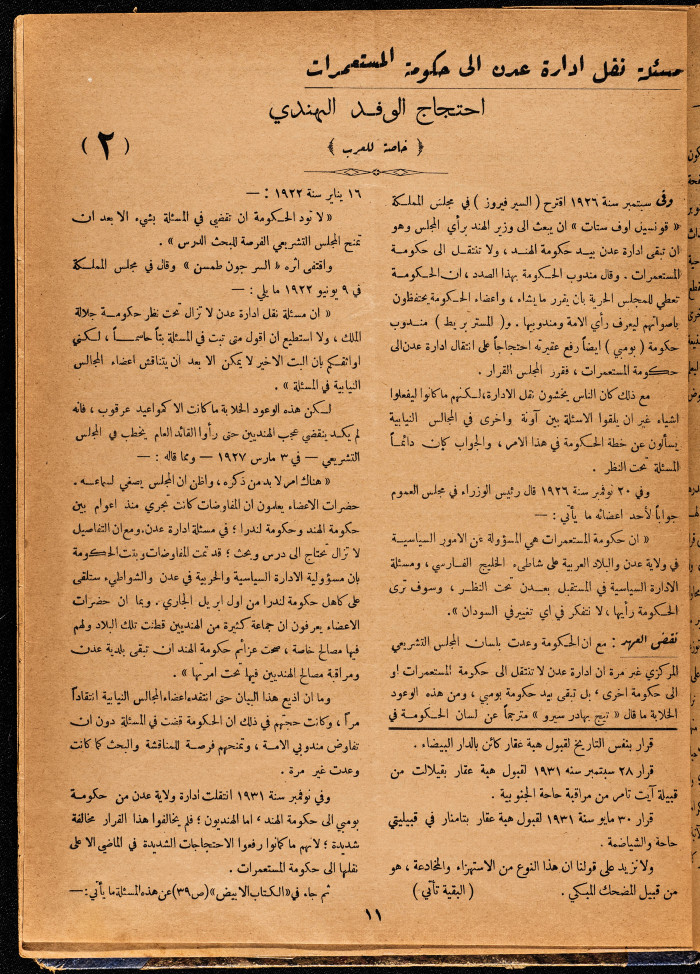 مسئلة نقل ادارة عدن الى حكومة المستعمرات
احتجاج الوفد الهندي
﴿ خاصة للعرب ﴾
( ٢ )
وفى سبتمبر سنة ١٩٢٦ اقترح ( السير فيروز ) في مجلس المملكة
« قونسيل اوف ستات » ان يبعث الى وزير الهند برأي المجلس وهو
ان تبقى ادارة عدن بيد حكومة الهند ، ولا تنتقل الى حكومة
المستعمرات . وقال مندوب الحكومة بهذا الصدد ، ان الحكومة
تعطي للمجلس الحرية بأن يقرر ما يشاء ، واعضاء الحكومة يحتفظون
باصواتهم ليعرف رأي الامة ومندوبيها . و( المستر بريط ) مندوب
حكومة ( بومبي ) ايضاً رفع عقيرته احتجاجاً على انتقال ادارة عدن الى
حكومة المستعمرات ، فقرر المجلس القرار .
مع ذلك كان الناس يخشون نقل الادارة ، لكنهم ما كانوا ليفعلوا
اشياء غير ان يلقوا الاسئلة بين آونة واخرى في المجالس النيابية
يسألون عن خطة الحكومة في هذا الامر ، والجواب كان دائماً
المسئلة تحت النظر .
وفي ٢٠ نوفمبر سنة ١٩٢٦ قال رئيس الوزراء في مجلس العموم
جواباً لأحد اعضائه ما يأتي : —
« ان حكومة المستعمرات هي المسؤولة عن الامور السياسية
في ولاية عدن والبلاد العربية على شاطىء الخليج الفارسي ، ومسئلة
الادارة السياسية في المستقبل بعدن تحت النظر ، وسوف ترى
الحكومة رأيها ، لا نتفكر في اي تغيير في السودان » .
نقض العهد : مع ان الحكومة وعدت بلسان المجلس التشريعي
المركزي غير مرة ان ادارة عدن لا تنتقل الى حكومة المستعمرات او
الى حكومة اخرى ، بل تبقى بيد حكومة بومبي ، ومن هذه الوعود
الخلابة ما قال « تيج بهادر سبرو » مترجماً عن لسان الحكومة في
قرار بنفس التاريخ لقبول هبة عقار كائن بالدار البيضاء .
قرار ٢٨ سبتمبر سنه ١٩٣١ لقبول هبة عقار بقيلالت من
قبيلة آيت تامر من مراقبة حاحة الجنوبية .
قرار ٣٠ مايو سنة ١٩٣١ لقبول هبة عقار بتامنار في قبيلتي
حاحة والشياضمة .
ولا نزيد على قولنا ان هذا النوع من الاستهزاء والمخادعة ، هو
من قبيل المضحك المبكي . ( البقية تأتي )
١٦ يناير سنة ١٩٢٢ : —
« لا تود الحكومة ان تقضي في المسئلة بشيء الا بعد ان
تمنح المجلس التشريعي الفرصة للبحث الدرس » .
واقتفى أثره « السر جون طمسن » وقال في مجلس المملكة
في ٩ يونيو ١٩٢٢ ما يلي : —
« ان مسئلة نقل ادارة عدن لا تزال تحت نظر حكومة جلالة
الملك ، ولا استطيع ان اقول متى تبت في المسئلة بتاً حاسماً ، لكني
اواثقكم بان البت الاخير لا يمكن الا بعد ان يتناقش أعضاء المجالس
النيابية في المسئلة » .
لكن هذه الوعود الخلابة ما كانت الا كمواعيد عرقوب ، فانه
لم يكد ينقضي عجب الهنديين حتى رأوا القائد العام يخطب في المجلس
التشريعي — في ٣ مارس ١٩٢٧ — ومما قاله : —
« هناك امر لا بد من ذكره ، واظن ان المجلس يصغي لسماعه .
حضرات الاعضاء يعلمون ان المفاوضات كانت تجري منذ اعوام بين
حكومة الهند وحكومة لندرا ؛ في مسئلة ادارة عدن ، ومع ان التفاصيل
لا تزال تحتاج الى درس وبحث ؛ قد تمت المفاوضات وبتت الحكومة
بان مسؤولية الادارة السياسية والحربية في عدن والشواطيء ستلقى
على كاهل حكومة لندرا من اول ابريل الجاري . وبما ان حضرات
الاعضاء يعرفون ان جماعة كثيرة من الهنديين قطنت تلك البلاد ولهم
فيها مصالح خاصة ، صحت عزائم حكومة الهند ان تبقى بلدية عدن
ومراقبة مصالح الهنديين فيها تحت امرتها » .
وما ان اذيع هذا البيان حتى انتقده اعضاء المجالس النيابية انتقاداً
مراً ، وكانت حجتهم في ذلك ان الحكومة قضت في المسئلة دون ان
تفاوض مندوبي الامة ، وتمنحهم فرصة للمناقشة والبحث كما كانت
وعدت غير مرة .
وفي نوفمبر سنة ١٩٣١ انتقلت ادارة ولاية عدن من حكومة
بومبي الى حكومة الهند ، اما الهنديون ؛ فلم يخالفوا هذا القرار مخالفة
شديدة ؛ لانهم ما كانوا رفعوا الاحتجاجات الشديدة في الماضي الا على
نقلها الى حكومة المستعمرات .
ثم جاء في « الكتاب الابيض » (ص ٣٩) عن هذه المسئلة ما يأتي : —
١١